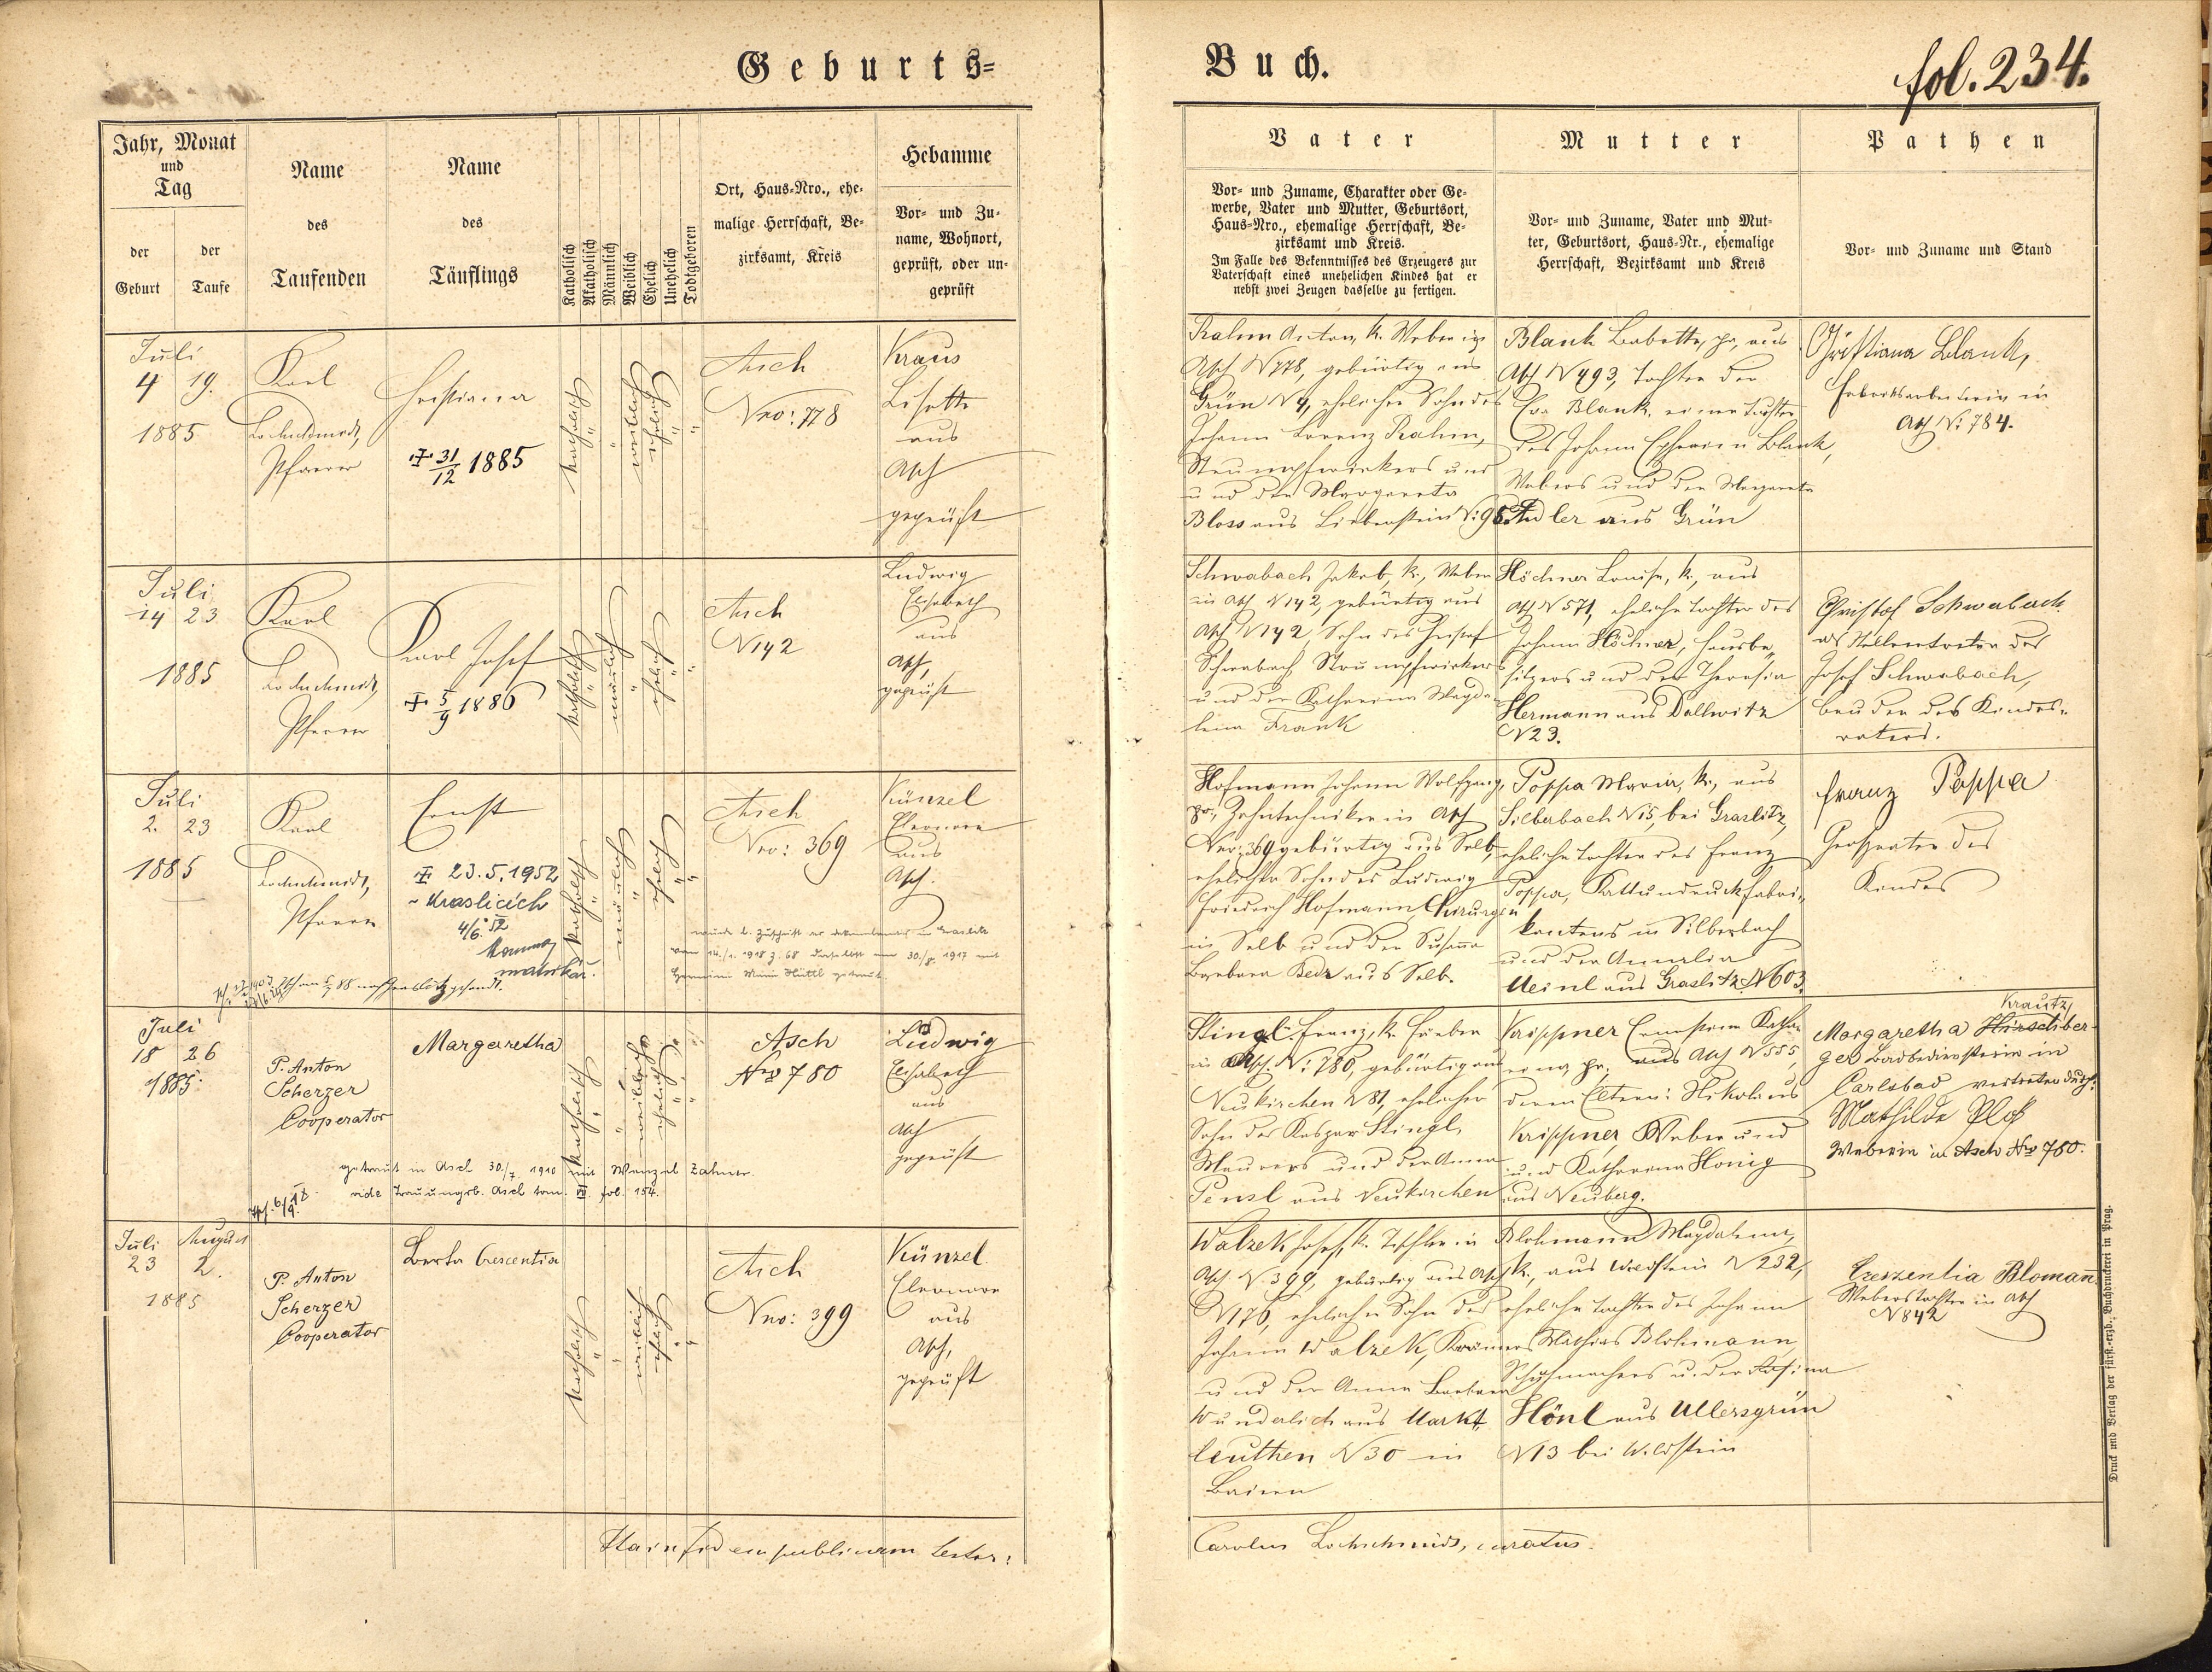 Geburts=
Buch.
fol. 234.
Jahr, Monat
und
Tag
der
Geburt
der
Taufe
Name
des
Taufenden
Name
des
Täuflings
Katholisch
Akatholisch
Männlich
Weiblich
Ehelich
Unehelich
Todtgeboren
Ort, Haus-Nro., ehe-
malige Herrschaft, Be-
zirksamt, Kreis
Hebamme
Vor- und Zu-
name, Wohnort,
geprüft, oder un-
geprüft
Vater
Vor- und Zuname, Charakter oder Ge-
werbe, Vater und Mutter, Geburtsort,
Haus-Nro., ehemalige Herrschaft, Be-
zirksamt und Kreis.
Im Falle des Bekenntnisses des Erzeugers zur
Vaterschaft eines unehelichen Kindes hat er
nebst zwei Zeugen dasselbe zu fertigen.
Mutter
Vor- und Zuname, Vater und Mut-
ter, Geburtsort, Haus-Nr., ehemalige
Herrschaft, Bezirksamt und Kreis
Pathen
Vor- und Zuname und Stand
Juli
4 19.
1885
Karl
Lochschmidt,
Pfarrer
Christiana
31/12 1885
katholisch
weiblich
ehelich
Asch
Nro: 778
Kraus
Lisette
aus
Asch
geprüft
Rahm Anton, k. Weber in
Asch N 778, gebürtig aus
Grün N 4, ehelicher Sohn des
Johann Lorenz Rahm,
Strumpfwirkers und
und der Margareta
Bloss aus Liebenstein N: 95
Blank Babette, pr, aus
Asch N 493, Tochter der
Eva Blank, einer Tochter
des Johann Blank,
Webers und der Margareta
Adler aus Grün
Christiana Blank,
Fabriksarbeiterin in
Asch N: 784.
Juli
14 23
1885
Karl
Lochschmidt,
Pfarrer
Karl Josef
5/9 1886
katholisch
mänlich
ehelich
Asch
N 142
Ludwig
Elisabeth
aus
Asch,
geprüft
Schwabach Jakob, k., Weber
in Asch N 142, gebürtig aus
Asch N 142, Sohn des Christof
Schwabach, Strumpfwirkers
und der Katharina Magda-
lena Frank
Höchner Louise, k., aus
Asch N 571, eheliche Tochter des
Johann Höchner, Hausbe-
sitzers und der Theresia
Hermann aus Dallwitz
N 23.
Christof Schwabach
als Stellvertreter des
Josef Schwabach,
Bruder des Kindes-
vaters.
Juli
2. 23
1885
Karl
Lochschmidt,
Pfarrer
Ernst
23.5.1952
v Kraslicích
4/6. 52
matrikář.
katholisch
mänlich
ehelich
Asch
Nro: 369
Künzel
Eleonore
aus
Asch.
vom 14./1. 1918 Z. 68 30./8. 1917 mit
Hüttl getraut.
Hofmann Johann Wolfgang,
pr., Zahntechniker in Asch
Nro: 369 gebürtig aus Selb,
ehelicher Sohn des Ludwig
Friedrich Hofmann, Chirurgen
in Selb und der Susanna
Barbara Bedz aus Selb.
Poppa Maria, k., aus
Silberbach N 15, bei Graslitz,
eheliche Tochter des Franz
Poppa, Kattundruckfabri-
kantens in Silberbach
und der Amalia
Meinl aus Graslitz N 603.
Franz Poppa
Großvater des
Kindes
Juli
18 26
1885.
P. Anton
Scherzer
Cooperator
Margaretha
katholisch
weiblich
ehelich
Asch
Nro 780
Ludwig
Elisabeth
aus
Asch
geprüft
getraut in Asch 30./7 1910 mit Wenzel Zahner.
vide Trauungsb. Asch tom. VII. fol. 154.
Stingl Franz, k. Färber
in Asch. N: 780, gebürtig aus
Neukirchen N 81, ehelicher
Sohn des Kaspar Stingl,
Maurers und der Anna
Pensl aus Neukirchen
Krippner Ernestine Katha-
rina, pr. aus Asch N 555,
deren Eltern: Nikolaus
Krippner, Weber und
und Katharina Honig
aus Neuberg.
Krautz
Margaretha Hirschber-
ger Badbedienstein in
Carlsbad vertreten durch:
Mathilde Ploß
Weberin in Asch Nro 780.
Juli August
23 2.
1885
P. Anton
Scherzer
Cooperator
Berta Crescentia
katholisch
weiblich
ehelich
Asch
Nro: 399
Künzel
Eleonore
aus
Asch,
geprüft
Watzek Josef, k. Tischler in
Asch N. 399, gebürtig aus Asch
N 176, ehelicher Sohn des
Johann Watzek, Krämers
und der Anna Barbara
Wunderlich aus Markt-
leuthen N 30 in
Baiern
Blohmann Magdalena,
k., aus Wildstein N 232,
eheliche Tochter des Johann
Mathias Blohmann,
Schuhmachers u. der Rosina
Hönl aus Ullersgrün
N 13 bei Wildstein
Creszentia Blomann
Weberstochter in Asch
N 842
Carolus Lochschmidt, curatus.
Druck und Verlag der fürst.-erzb. Buchdruckerei in Prag.